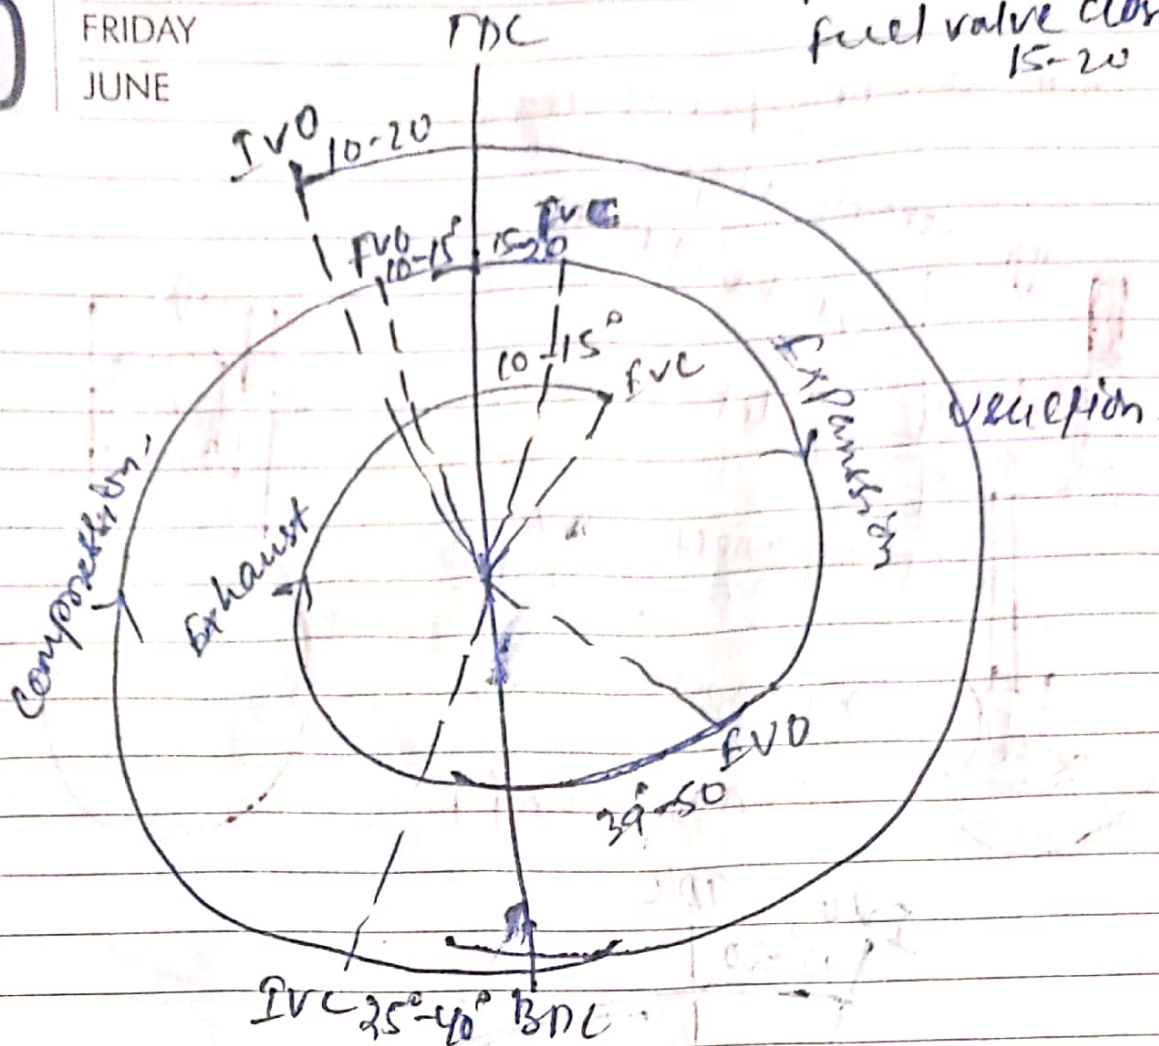 FRIDAY
JUNE
TDC
fuel valve clos
15-20
IVO 10-20
FVO
10-15°
15-20
FVC
10-15°
EVC
Expanssion
Compression
Exhaust
EVO
39°-50
IVC 25°-40° BDC